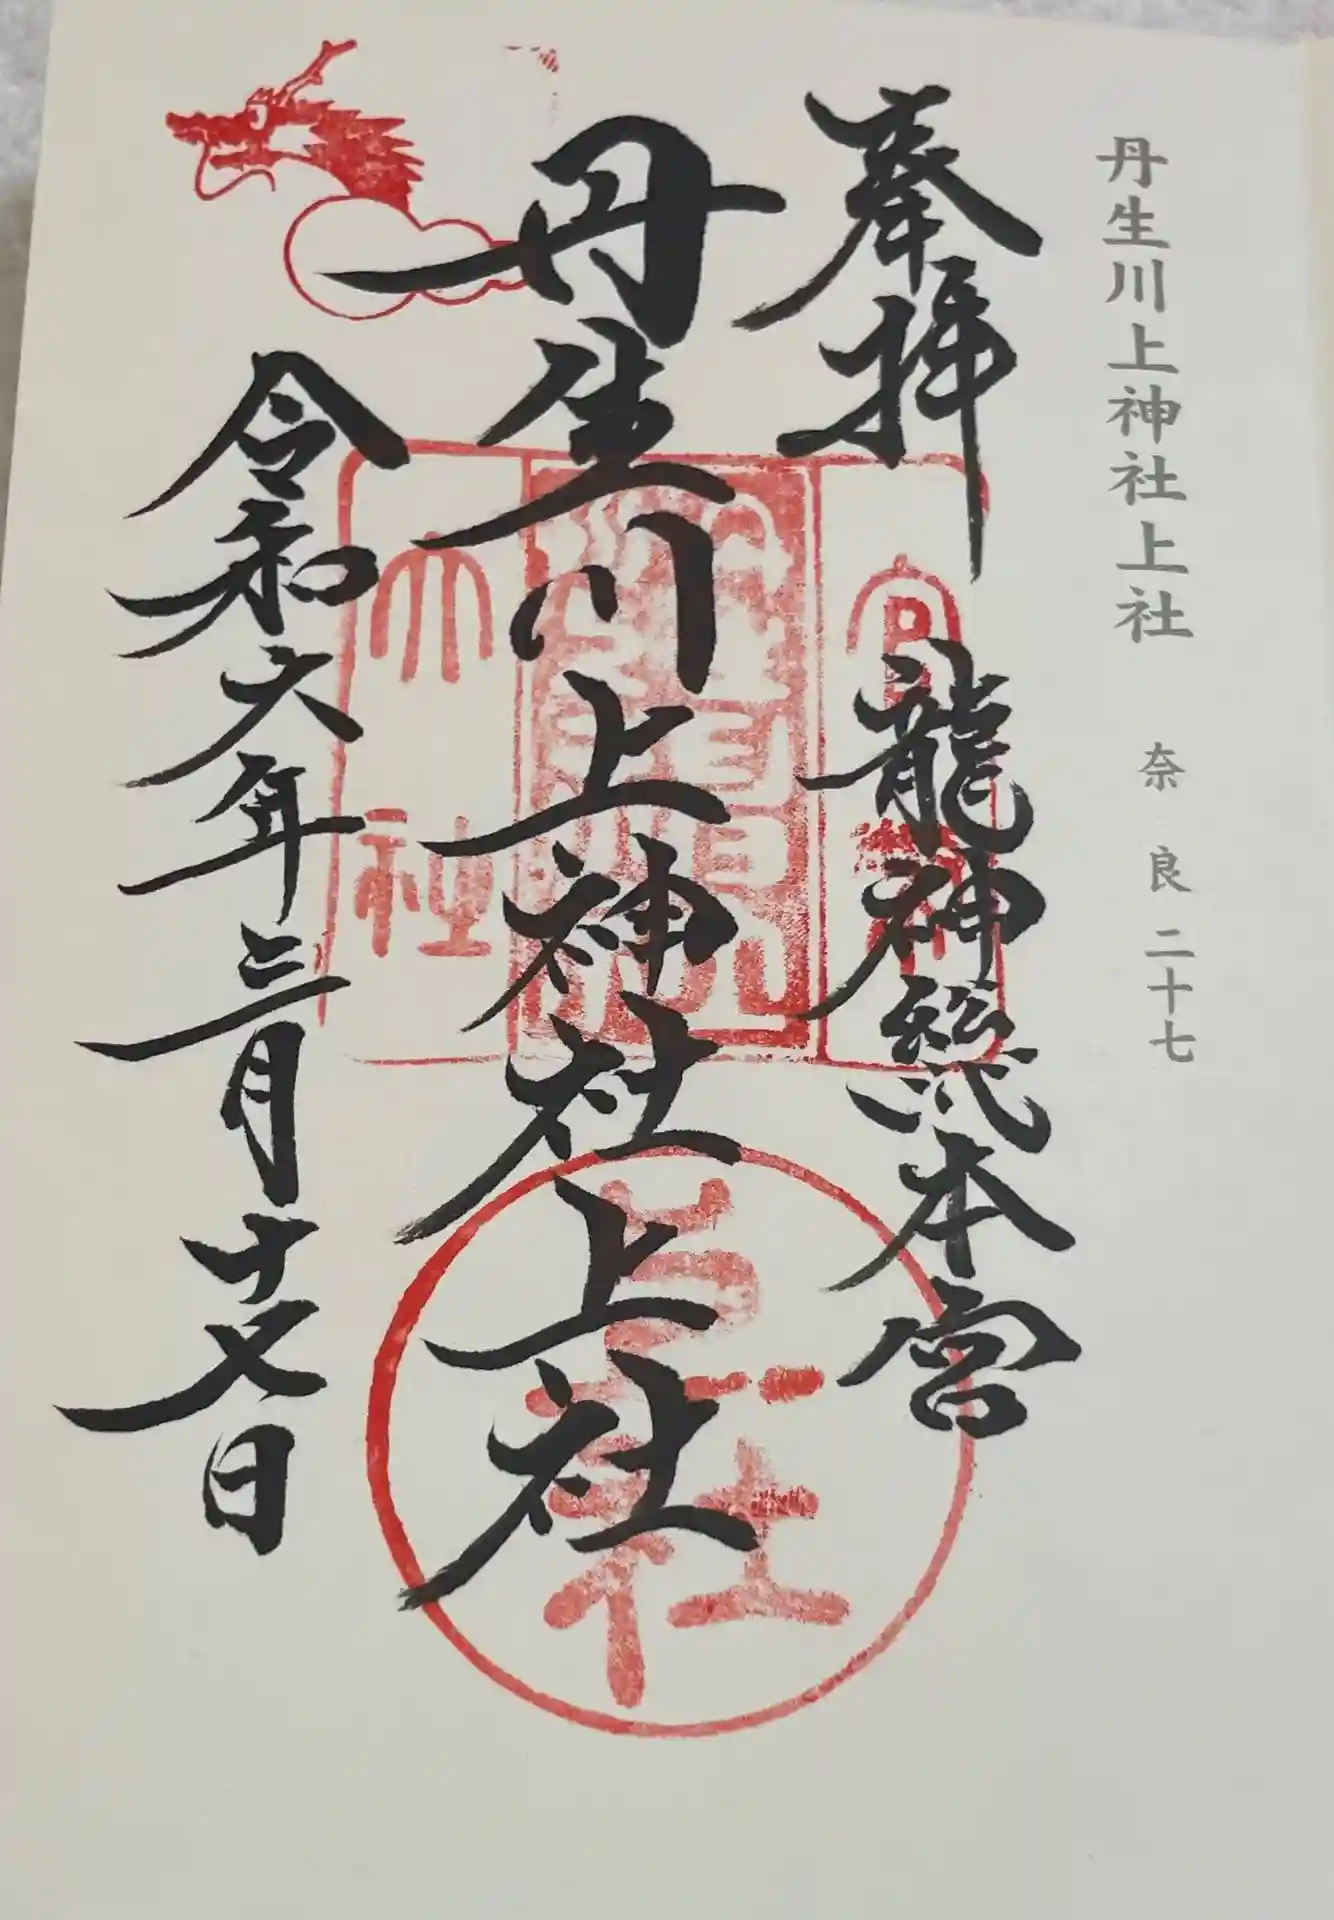 丹生川上神社上社 奈良二十七
奉拝 龍神総本宮
丹生川上神社上社
令和六年三月十 日
大社